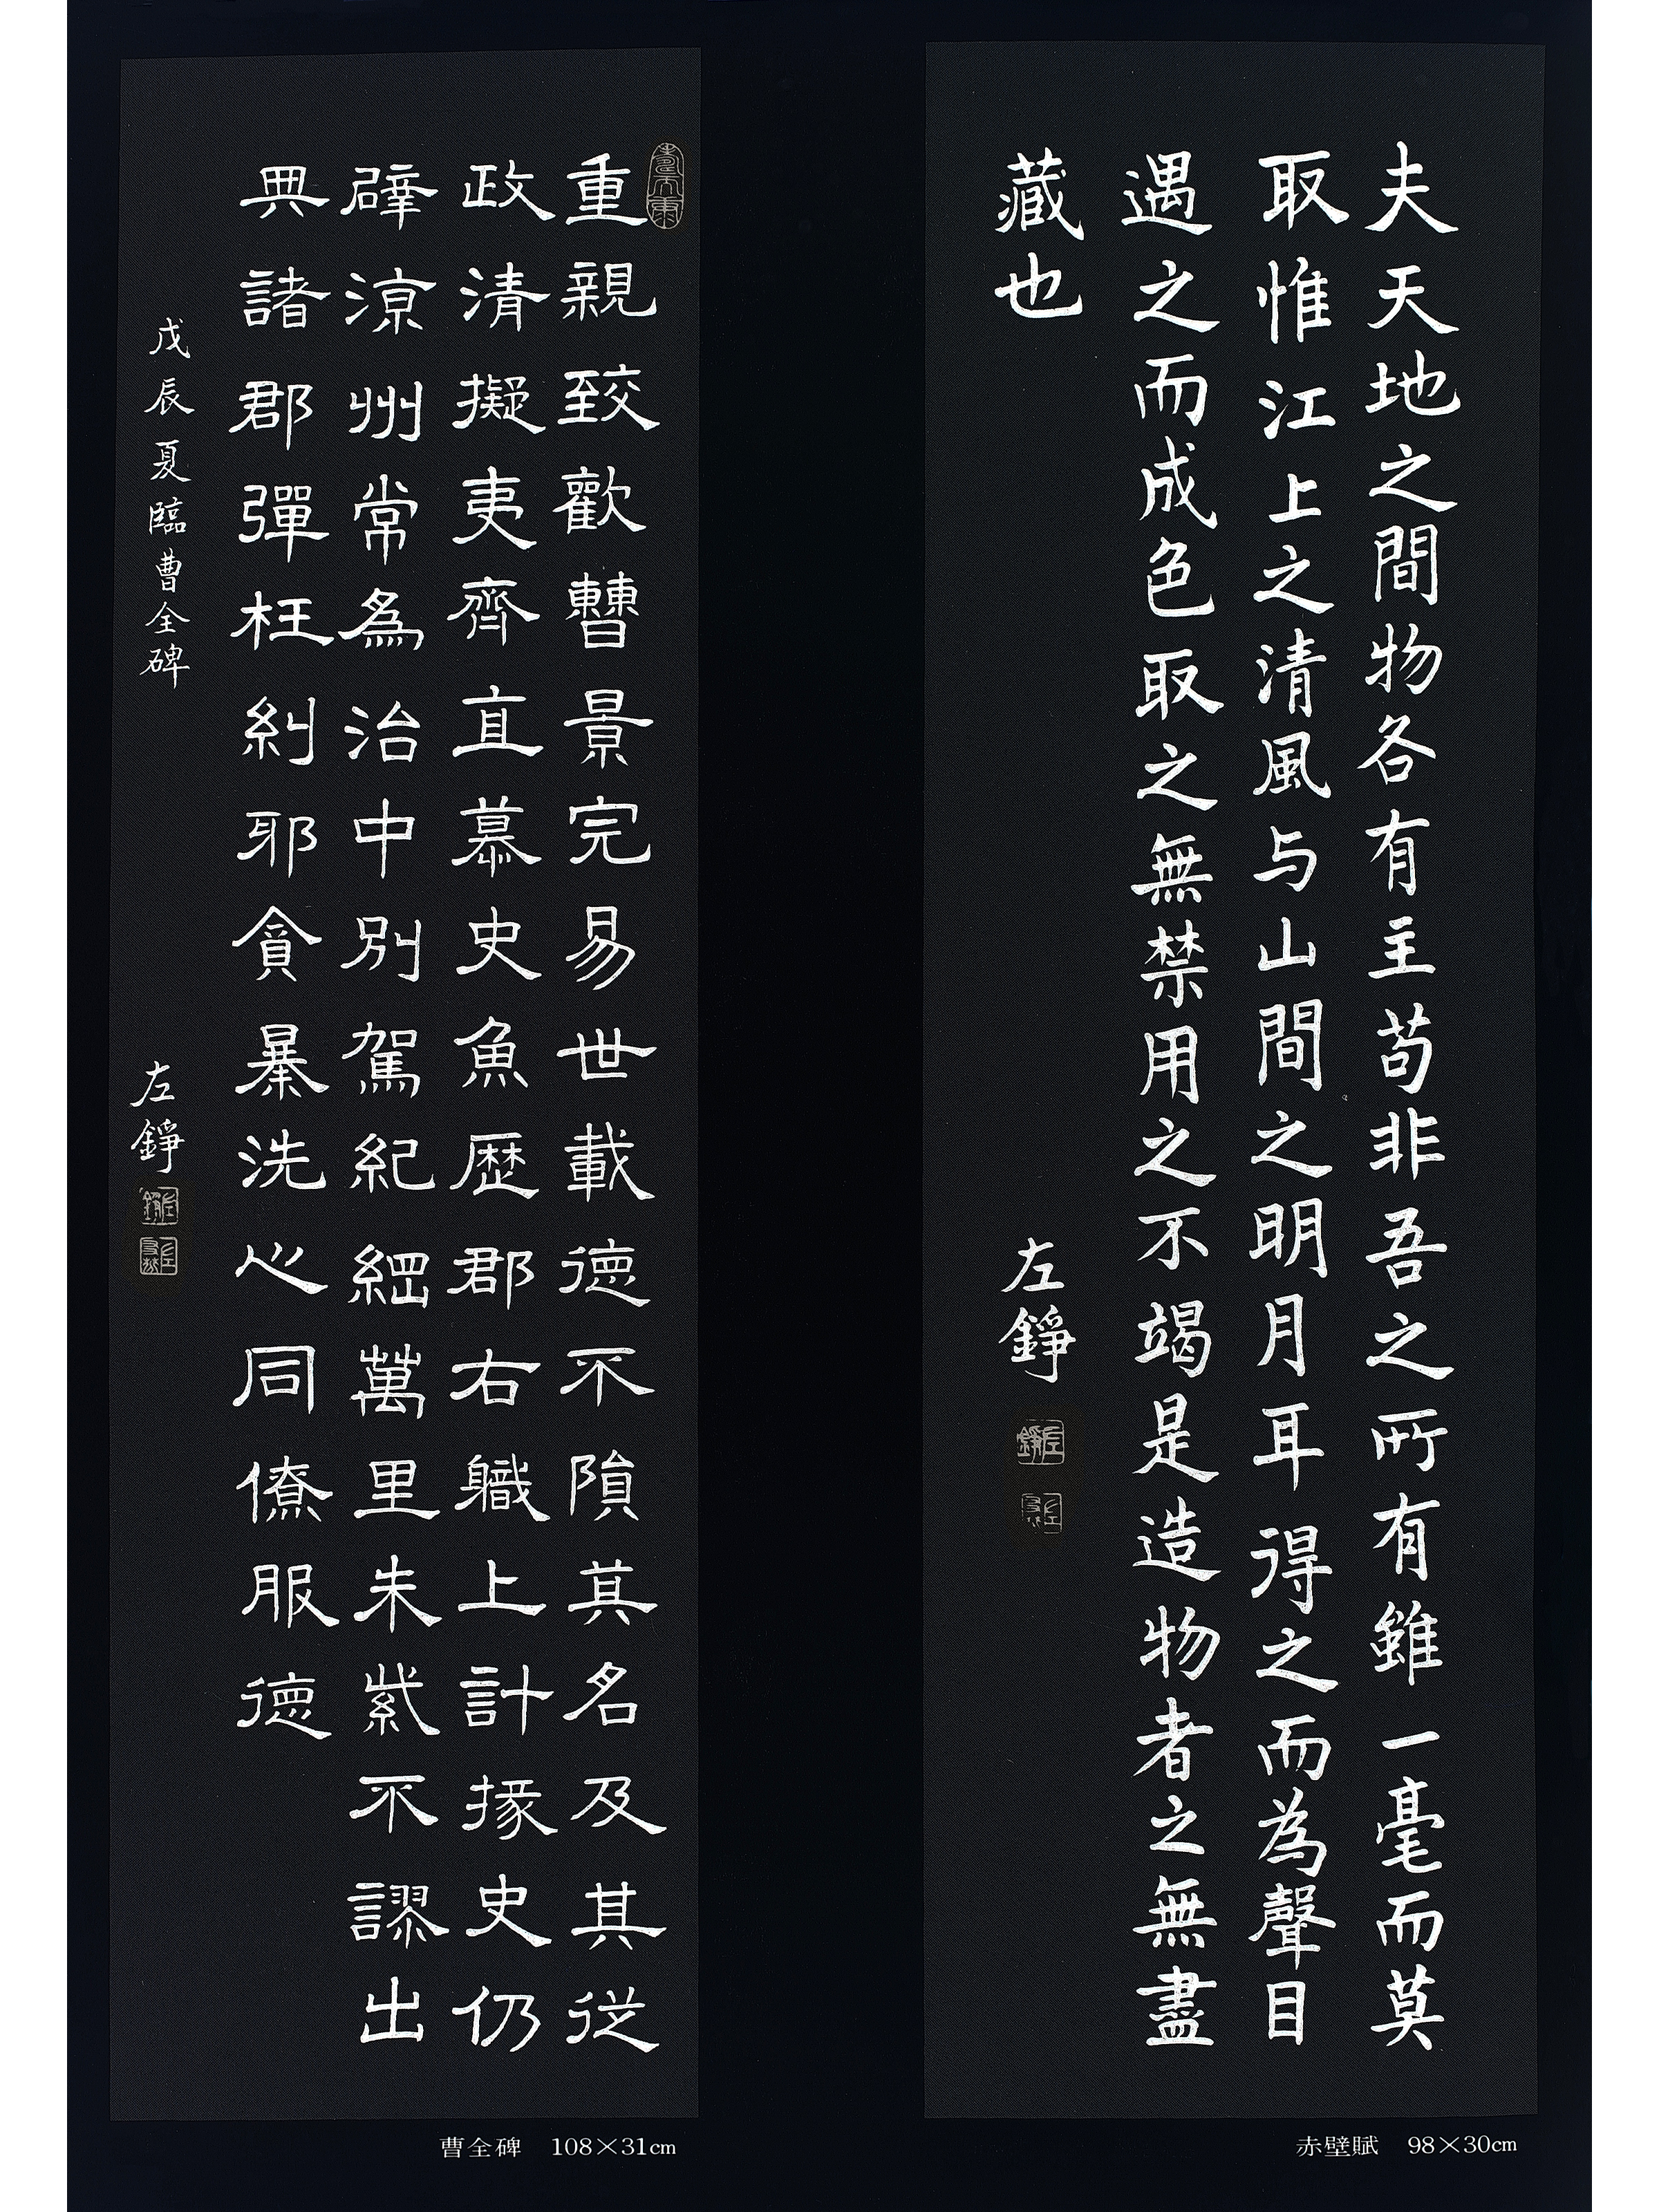 夫天地之間物各有主苟非吾之所有雖一毫而莫
取惟江上之清風与山間之明月耳得之而為聲目
遇之而成色取之無禁用之不竭是造物者之無盡
藏也
左錚
赤壁賦 98×30cm
重親致歡曹景完易世載德不隕其名及其從
政清擬夷齊直慕史魚歷郡右職上計掾史仍
辟涼州常為治中別駕紀綱萬里朱紫不謬出
典諸郡彈枉糾邪貪暴洗心同僚服德
戊辰夏臨曹全碑
左錚
曹全碑 108×31cm